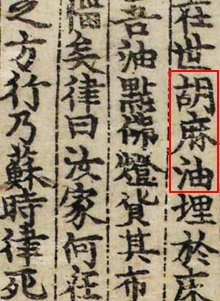 在世胡麻油埋於床
吾油點佛燈貨其布
矣律曰汝家何在
之方行乃蘇時律死